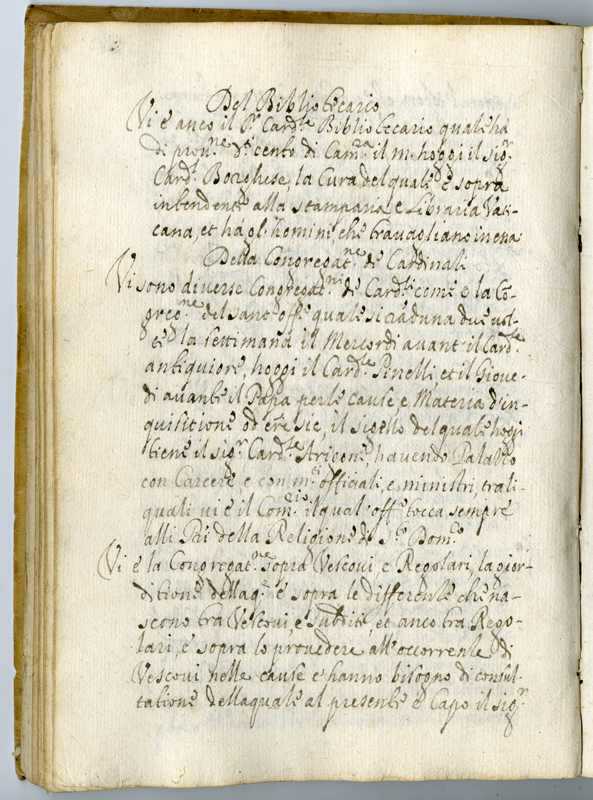 Del Bibliotecario
Vi è anco il S.r Card.le Bibliotecario quale hà
di prou.ne d.ti cento di Cam.ra il m. hoggi il sig.r
Card.l Borghese, la Cura del quale è sopra
intendente alla stamparia, e Libraria Vati-
cana, et hà gl'homini, che trauagliano in essa
Della Congregat.ne de Cardinali
Vi sono diuerse Congregat.ni de Card.li come è la Co-
greg.ne del sant'off.o quale si raduna due uol-
te la settimana il Mercordi auant'il Card.le
antiquiore, hoggi il Card.le Pinelli, et il Gioue-
di auante il Papa per le cause, e Materia d'in-
quisitione od eresie, il sigillo del quale hogi
tiene il sig.r Card.le Arigone, hauendo Palazzo
con Carcere, e con m.ti officiali, e ministri, tra li
quali ui è il Com.rio il qual'off.o tocca sempre
alli P̃ri della Religione di S.to Dom.co
Vi è la Congregat.ne sopra Vescoui, e Regolari, la giur-
ditione della q.le è sopra le differentie che na-
scono tra Vescoui, e Subditi, et anco tra Rego-
lari, e sopra lo prouedere all'occorrentie di
Vescoui nelle cause c'hanno bisogno di consul-
tatione della quale al presente è Capo il sig.r